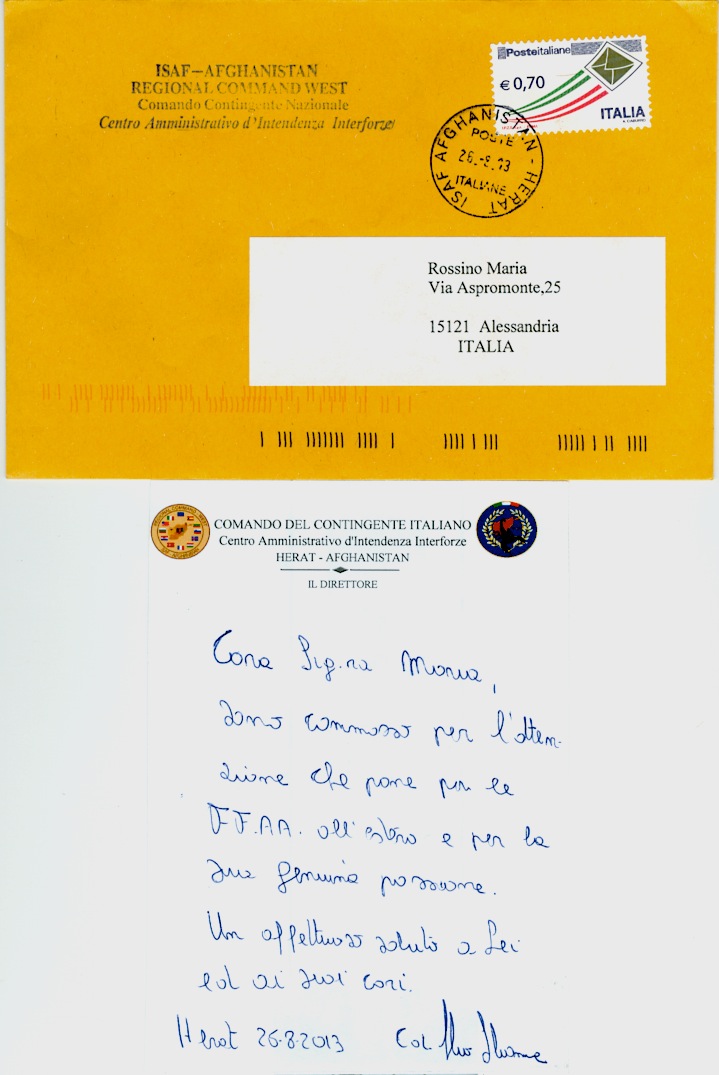 ISAF-AFGHANISTAN
REGIONAL COMMAND WEST
Comando Contingente Nazionale
Centro Amministrativo d'Intendenza Interforze
Posteitaliane
€ 0,70
ITALIA
ISAF AFGHANISTAN - HERAT
POSTE
26.-8.13
ITALIANE
Rossino Maria
Via Aspromonte,25
15121 Alessandria
ITALIA
COMANDO DEL CONTINGENTE ITALIANO
Centro Amministrativo d'Intendenza Interforze
HERAT - AFGHANISTAN
IL DIRETTORE
Cara Sig.ra Maria,
sono commosso per l'atten-
zione che pone per le
FF.AA. all'estero e per la
sua genuina passione.
Un affettuoso saluto a Lei
ed ai suoi cari.
Herat 26-8-2013 Col.